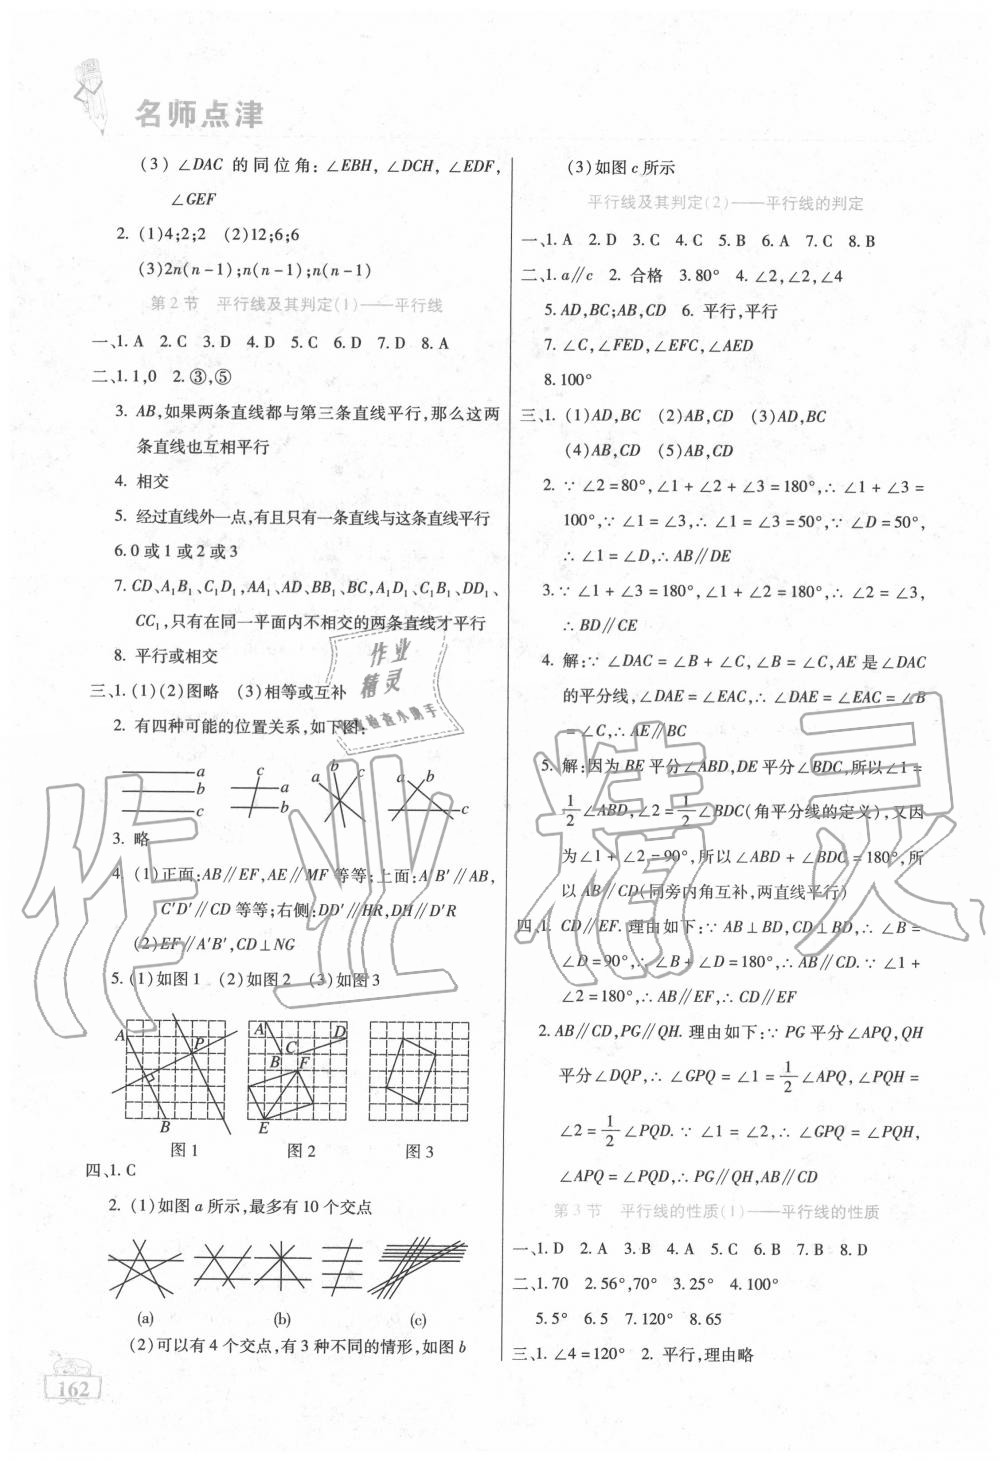 名师点津
(3) ∠DAC 的同位角: ∠EBH, ∠DCH, ∠EDF,
∠GEF
2. (1)4;2;2 (2)12;6;6
(3)2n(n-1);n(n-1);n(n-1)
第2节 平行线及其判定(1)——平行线
一、1. A 2. C 3. D 4. D 5. C 6. D 7. D 8. A
二、1. 1,0 2. ③,⑤
3. AB,如果两条直线都与第三条直线平行,那么这两
条直线也互相平行
4. 相交
5. 经过直线外一点,有且只有一条直线与这条直线平行
6. 0或1或2或3
7. CD、A₁B₁、C₁D₁,AA₁、AD、BB₁、BC,A₁D₁、C₁B₁、DD₁、
CC₁,只有在同一平面内不相交的两条直线才平行
8. 平行或相交
三、1. (1)(2)图略 (3)相等或互补
2. 有四种可能的位置关系,如下图:
a b c
c a b
a b c
a b c
3. 略
4. (1)正面:AB∥EF,AE∥MF等等;上面:A′B′∥AB,
C′D′∥CD等等;右侧:DD′∥HR,DH∥D′R
(2)EF∥A′B′,CD⊥NG
5. (1)如图1 (2)如图2 (3)如图3
A P B
A D C B F E
图1 图2 图3
四、1. C
2. (1)如图a所示,最多有10个交点
(a) (b) (c)
(2)可以有4个交点,有3种不同的情形,如图b
162
(3)如图c所示
平行线及其判定(2)——平行线的判定
一、1. A 2. D 3. C 4. C 5. B 6. A 7. C 8. B
二、1. a∥c 2. 合格 3. 80° 4. ∠2,∠2,∠4
5. AD,BC;AB,CD 6. 平行,平行
7. ∠C,∠FED,∠EFC,∠AED
8. 100°
三、1. (1)AD,BC (2)AB,CD (3)AD,BC
(4)AB,CD (5)AB,CD
2. ∵ ∠2=80°,∠1+∠2+∠3=180°,∴ ∠1+∠3=
100°,∵ ∠1=∠3,∴ ∠1=∠3=50°,∵ ∠D=50°,
∴ ∠1=∠D,∴ AB∥DE
3. ∵ ∠1+∠3=180°,∠1+∠2=180°,∴ ∠2=∠3,
∴ BD∥CE
4. 解:∵ ∠DAC=∠B+∠C,∠B=∠C,AE是∠DAC
的平分线,∠DAE=∠EAC,∴ ∠DAE=∠EAC=∠B
=∠C,∴ AE∥BC
5. 解:因为BE平分∠ABD,DE平分∠BDC,所以∠1=
1/2∠ABD,∠2=1/2∠BDC(角平分线的定义),又因
为∠1+∠2=90°,所以∠ABD+∠BDC=180°,所
以AB∥CD(同旁内角互补,两直线平行)
四、1. CD∥EF. 理由如下:∵ AB⊥BD,CD⊥BD,∴ ∠B=
∠D=90°,∴ ∠B+∠D=180°,∴ AB∥CD. ∵ ∠1+
∠2=180°,∴ AB∥EF,∴ CD∥EF
2. AB∥CD,PG∥QH. 理由如下:∵ PG平分∠APQ,QH
平分∠DQP,∴ ∠GPQ=∠1=1/2∠APQ,∠PQH=
∠2=1/2∠PQD. ∵ ∠1=∠2,∴ ∠GPQ=∠PQH,
∠APQ=∠PQD,∴ PG∥QH,AB∥CD
第3节 平行线的性质(1)——平行线的性质
一、1. D 2. A 3. B 4. A 5. C 6. B 7. B 8. D
二、1. 70 2. 56°,70° 3. 25° 4. 100°
5. 5° 6. 5 7. 120° 8. 65
三、1. ∠4=120° 2. 平行,理由略
作业精灵
作业
精灵
检查小助手